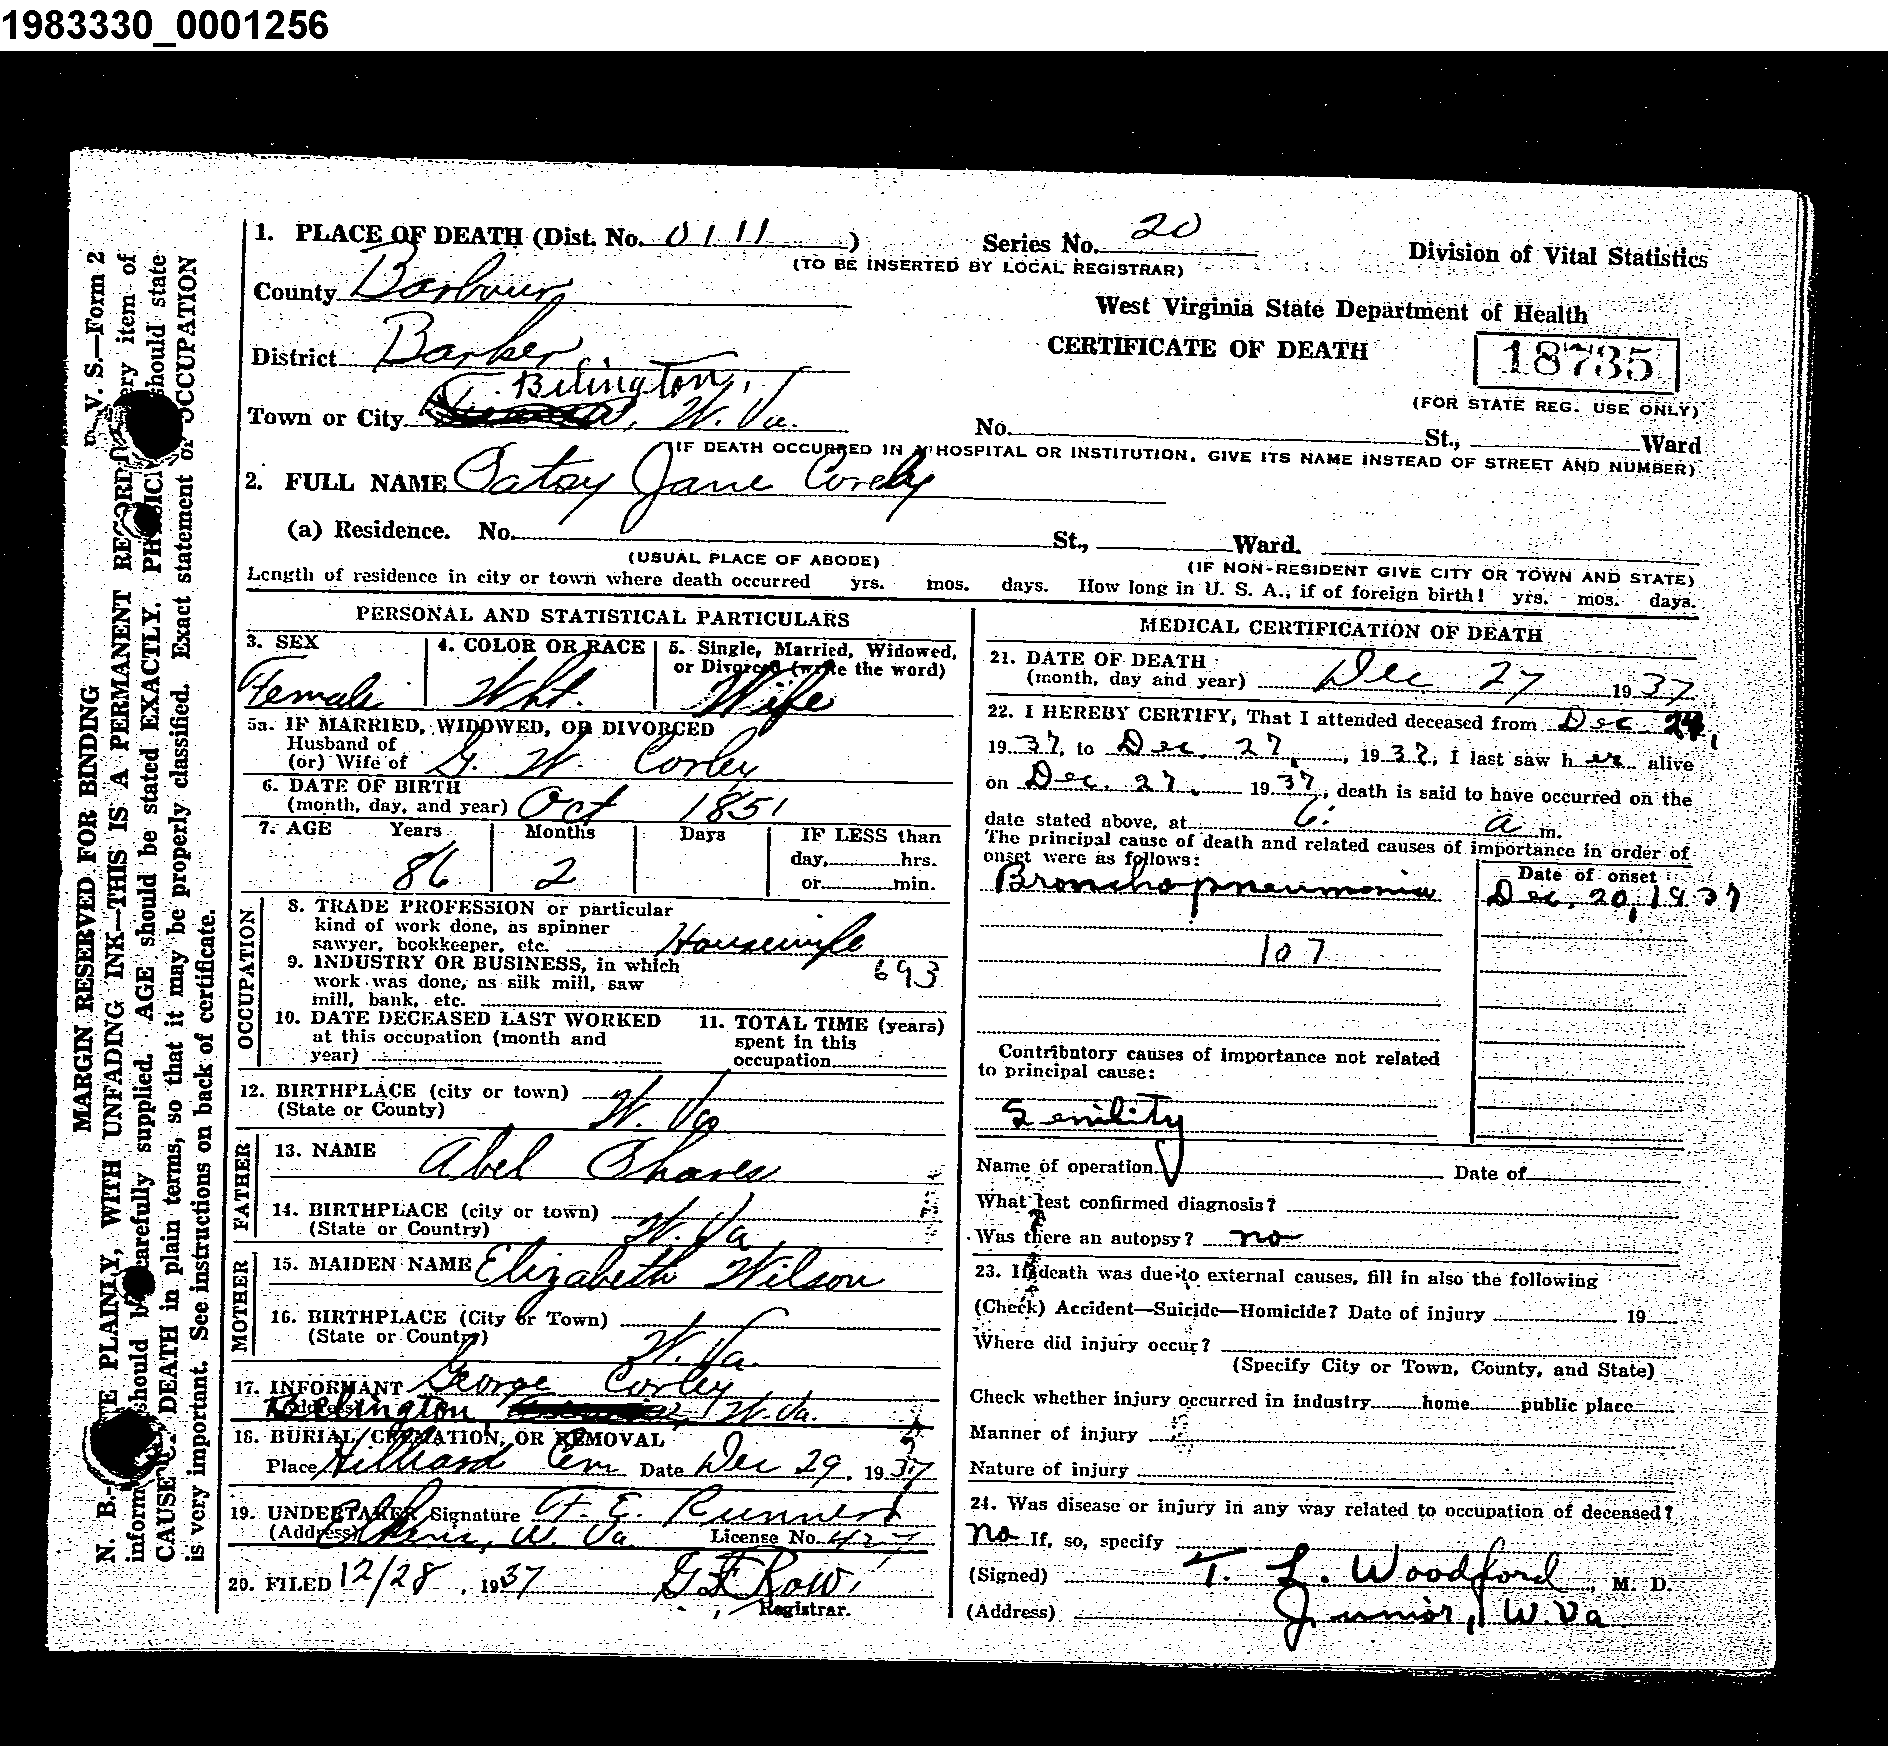 1983330_0001256
1. PLACE OF DEATH (Dist. No. 0111)
Series No. 20
(TO BE INSERTED BY LOCAL REGISTRAR)
Division of Vital Statistics
County Barbour
West Virginia State Department of Health
CERTIFICATE OF DEATH
18735
(FOR STATE REG. USE ONLY)
District Barker
Belington,
Town or City W. Va.
No. St., Ward
(IF DEATH OCCURRED IN A HOSPITAL OR INSTITUTION, GIVE ITS NAME INSTEAD OF STREET AND NUMBER)
2. FULL NAME Patsy Jane Corely
(a) Residence. No. St., Ward.
(USUAL PLACE OF ABODE)
(IF NON-RESIDENT GIVE CITY OR TOWN AND STATE)
Length of residence in city or town where death occurred yrs. mos. days. How long in U. S. A., if of foreign birth! yrs. mos. days.
PERSONAL AND STATISTICAL PARTICULARS
3. SEX
Female
4. COLOR OR RACE
Wht.
5. Single, Married, Widowed,
or Divorced (write the word)
Wife
5a. IF MARRIED, WIDOWED, OR DIVORCED
Husband of
(or) Wife of G. W. Corley
6. DATE OF BIRTH
(month, day, and year) Oct 1851
7. AGE Years Months Days IF LESS than
day, hrs.
86 2 or min.
OCCUPATION
8. TRADE PROFESSION or particular
kind of work done, as spinner
sawyer, bookkeeper, etc. Housewife
9. INDUSTRY OR BUSINESS, in which 693
work was done, as silk mill, saw
mill, bank, etc.
10. DATE DECEASED LAST WORKED
at this occupation (month and
year)
11. TOTAL TIME (years)
spent in this
occupation
12. BIRTHPLACE (city or town)
(State or County) W. Va
FATHER
13. NAME Abel Phares
14. BIRTHPLACE (city or town)
(State or Country) W. Va
MOTHER
15. MAIDEN NAME Elizabeth Wilson
16. BIRTHPLACE (City or Town)
(State or Country) W. Va.
17. INFORMANT George Corley
Belington, W. Va.
18. BURIAL, CREMATION, OR REMOVAL
Place Hilliard Cem Date Dec 29, 1937
19. UNDERTAKER Signature F. E. Runner
(Address) Elkins, W. Va. License No. 427
20. FILED 12/28, 1937 G F Row,
Registrar.
MEDICAL CERTIFICATION OF DEATH
21. DATE OF DEATH
(month, day and year) Dec 27 1937
22. I HEREBY CERTIFY, That I attended deceased from Dec. 24,
1937, to Dec. 27, 1937, I last saw her alive
on Dec. 27, 1937, death is said to have occurred on the
date stated above, at 6: a m.
The principal cause of death and related causes of importance in order of
onset were as follows:
Date of onset
Bronchopneumonia Dec. 20, 1937
107
Contributory causes of importance not related
to principal cause:
Senility
Name of operation Date of
What test confirmed diagnosis?
Was there an autopsy? no
23. If death was due to external causes, fill in also the following
(Check) Accident—Suicide—Homicide? Date of injury 19
Where did injury occur?
(Specify City or Town, County, and State)
Check whether injury occurred in industry home public place
Manner of injury
Nature of injury
24. Was disease or injury in any way related to occupation of deceased?
no If, so, specify
(Signed) T. L. Woodford, M. D.
(Address) Junior, W. Va
V. S.—Form 2
MARGIN RESERVED FOR BINDING
N. B.— PLAINLY, WITH UNFADING INK—THIS IS A PERMANENT RECORD. item of
should be carefully supplied. AGE should be stated EXACTLY. should state
CAUSE OF DEATH in plain terms, so that it may be properly classified. Exact statement of OCCUPATION
is very important. See instructions on back of certificate.